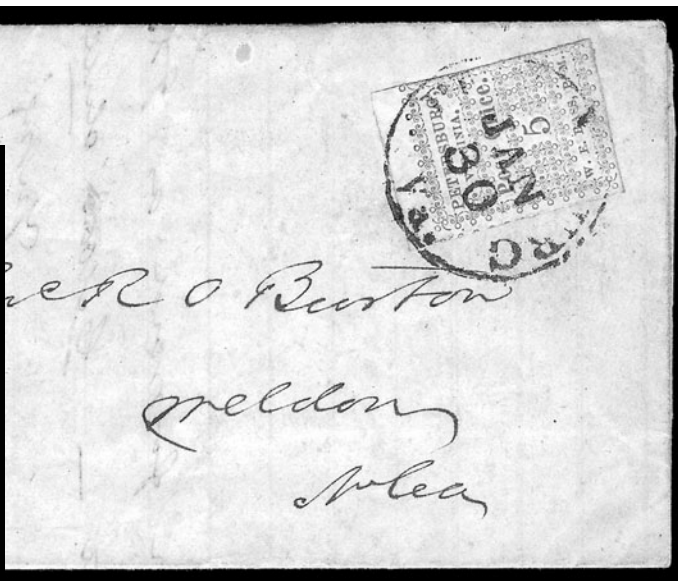 PETERSBURG,
VIRGINIA.
Post Office.
5
W. E. BASS, P.M.
JAN
30
R O Burton
Weldon
No Ca